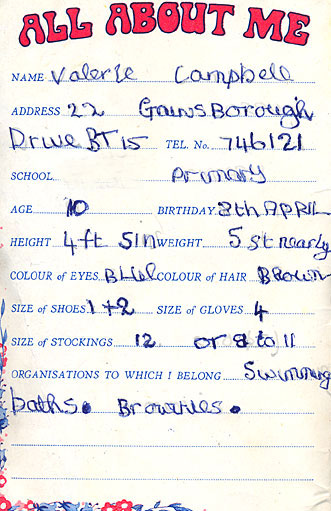 ALL ABOUT ME
NAME Valerie Campbell
ADDRESS 22 GainsBorough
Drive BT15 TEL. No. 746121
SCHOOL Primary
AGE 10 BIRTHDAY 8th APRIL
HEIGHT 4ft 5In WEIGHT 5 st nearly
COLOUR of EYES BLUe COLOUR of HAIR BROWN
SIZE of SHOES 1+2 SIZE of GLOVES 4
SIZE of STOCKINGS 12 or 8 to 11
ORGANISATIONS TO WHICH I BELONG Swimming
baths. Brownies.